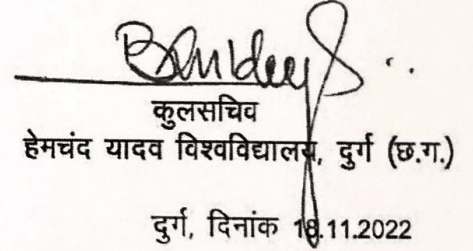 कुलसचिव
हेमचंद यादव विश्वविद्यालय, दुर्ग (छ.ग.)
दुर्ग, दिनांक 18.11.2022